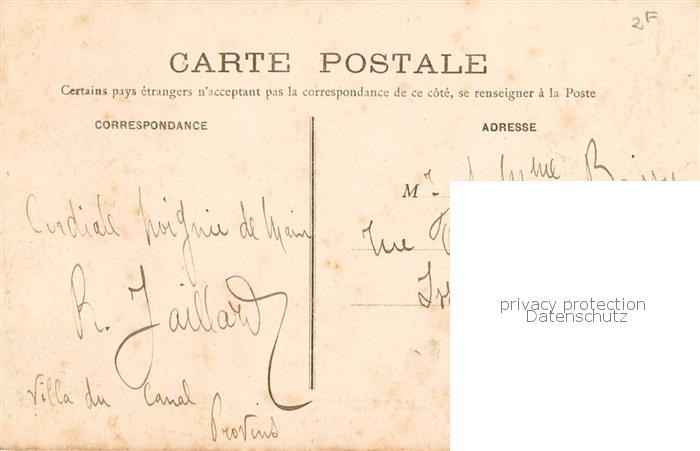 2F
CARTE POSTALE
Certains pays étrangers n'acceptant pas la correspondance de ce côté, se renseigner à la Poste
CORRESPONDANCE
Cordiale poignée de Main
R. Jaillard
Villa du Canal
Provins
ADRESSE
Mr. & Mme
rue
privacy protection
Datenschutz